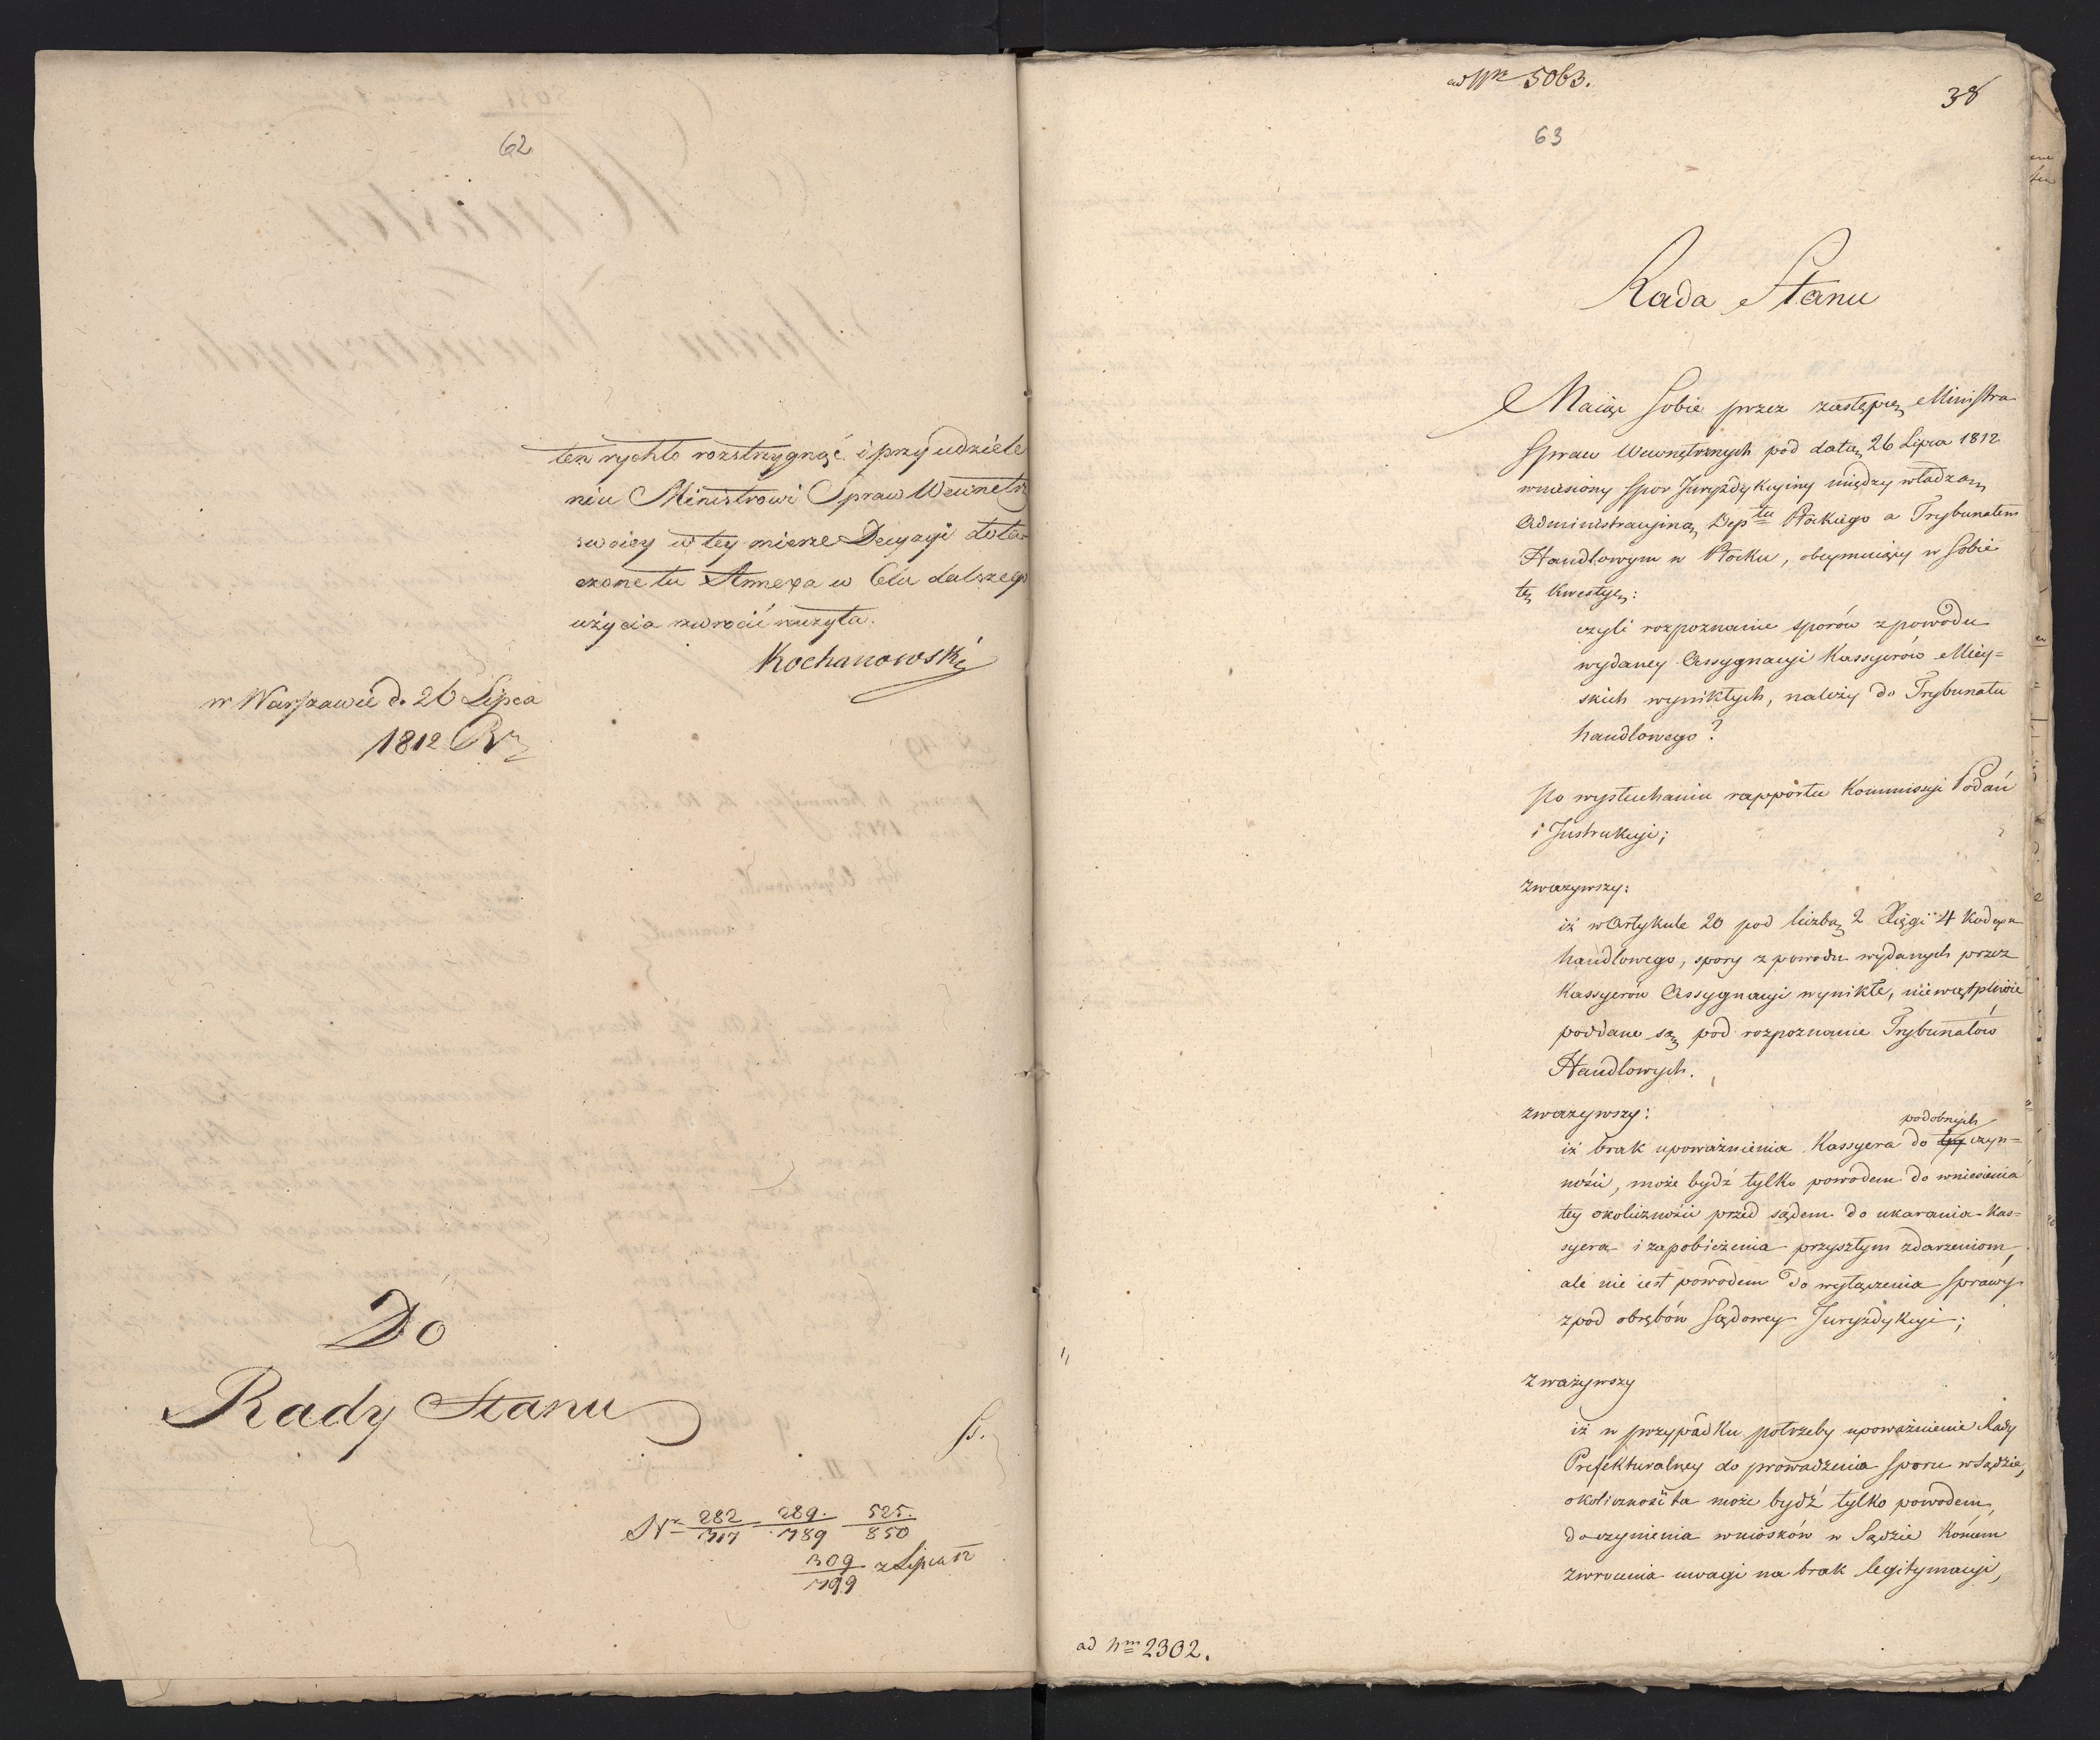 62
ten rychło rozstrzygnąć i przy udziele
niu Ministrowi Spraw Wewnetrz
swoiey w tey mierze Decyzyi dołą
czone tu Annexa w Celu dalszego
użycia zwrócić raczyła.
Kochanowski
w Warszawie d. 26 Lipca
1812 Rr
Do
Rady Stanu
Ss.
Nr 282/717 289./789 525./850
309/799 z Lipca 12
ad Nr 5063.
38
63
Rada Stanu
Maiąc sobie przez zastępcę Ministra
Spraw Wewnętrznych pod datą 26 Lipca 1812
wniesiony spor Juryzdykcyiny między władzą
Administracyiną Deptu Płockiego a Trybunałem
Handlowym w Płocku, obeymuiący w sobie
tę kwestyę:
czyli rozpoznanie sporów z powodu
wydaney Assygnacyi Kassyerów Miey=
skich wynikłych, należy do Trybunału
handlowego?
Po wysłuchaniu rapportu Kommissyi Podań
i Instrukcyi;
zważywszy:
iż w Artykule 20 pod liczbą 2 Xięgi 4 Kodexu
handlowego, spory z powodu wydanych przez
Kassyerów Assygnacyi wynikłe, niewątpliwie
poddane są pod rozpoznanie Trybunałów
Handlowych.
zważywszy:
podobnych
iż brak upoważnienia Kassyera do tey czyn=
ności, może bydź tylko powodem do wniesienia
tey okoliczności przed sądem do ukarania Kas=
syera i zapobieżenia przyszłym zdarzeniom,
ale nie iest powodem do wyłączenia sprawy
z pod obrębów Sądowey Juryzdykcyi;
zważywszy
iż w przypadku potrzeby upoważnienie Rady
Prefekturalney do prowadzenia sporu w Sądzie,
okoliczność ta może bydź tylko powodem,
do czynienia wniosków w Sądzie końcem
zwrócenia uwagi na brak legitymacyi,
ad Nm 2302.